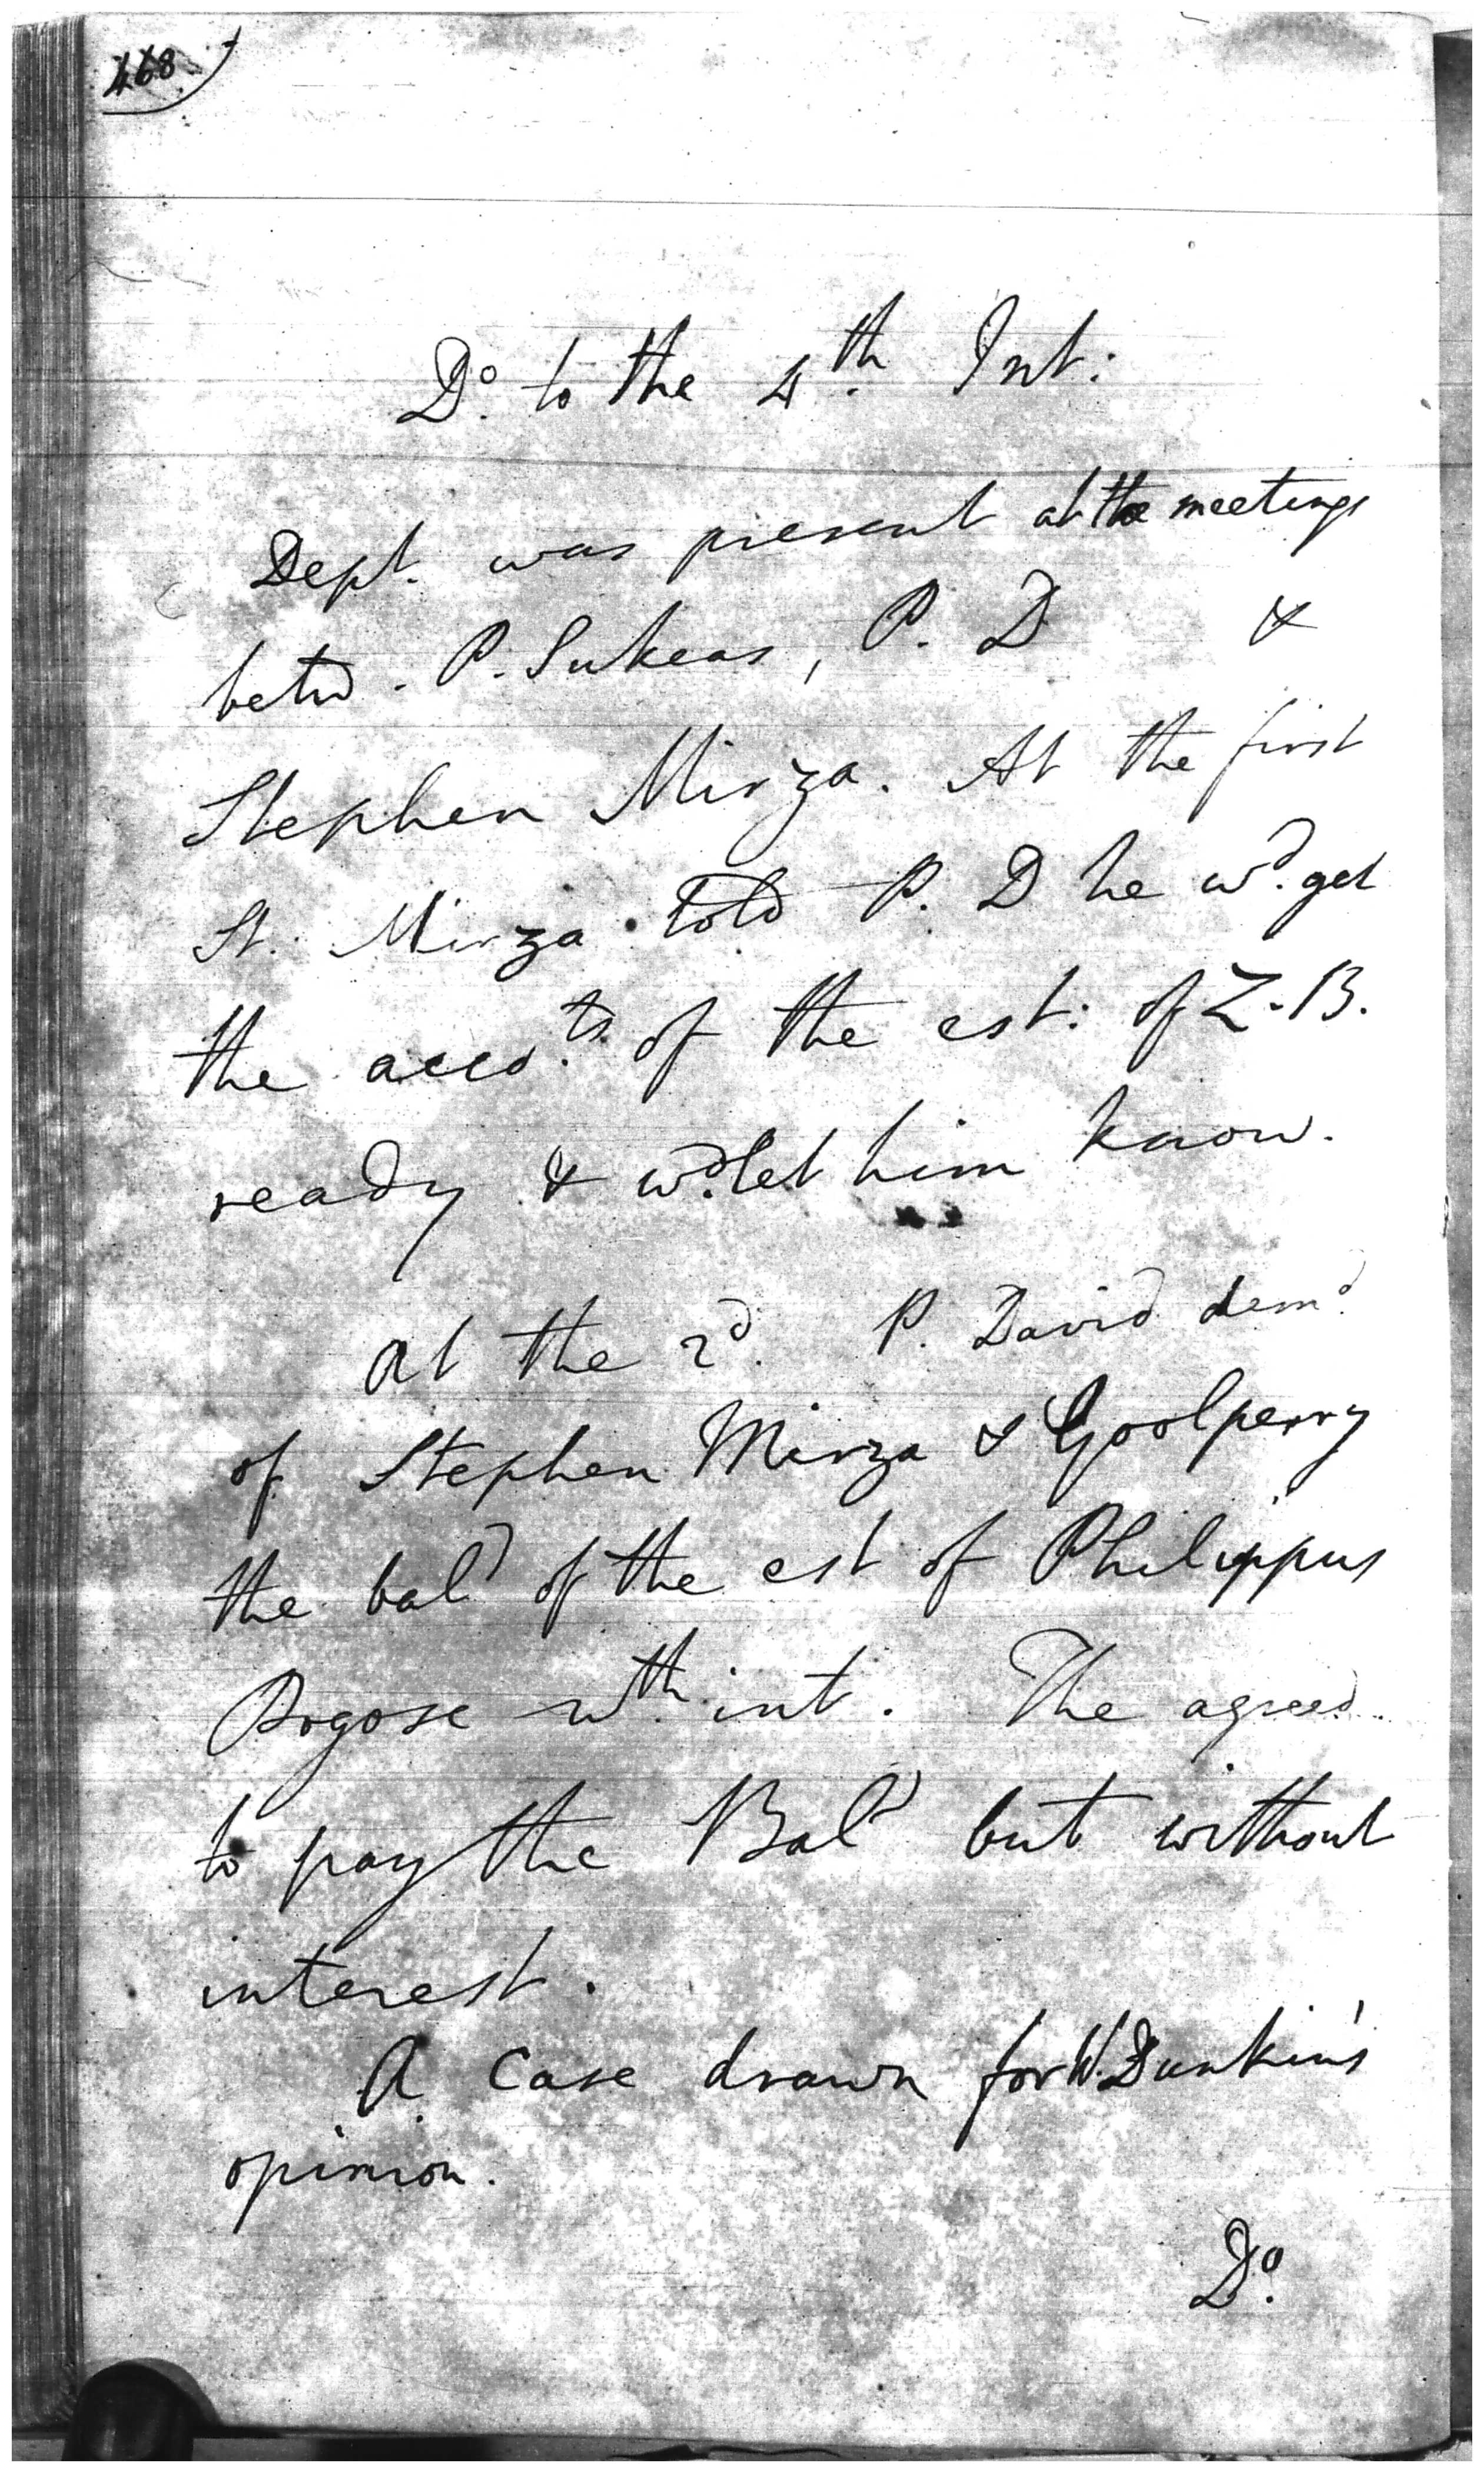 468
Do. to the 4th. Int:
Dept. was present at the meetings
betw. P. Sukeas, P. D &
Stephen Mirza. At the first
St. Mirza told P. D he wd. get
the accots. of the est: of Z. B.
ready & wd. let him know.
At the 2d. P. David demd
of Stephen Mirza & Goolperry
the bal of the est of Philippus
Pogose wth. int. The agreed
to pay the Bal but without
interest.
A Case drawn for W. Dunkin's
opinion.
Do.